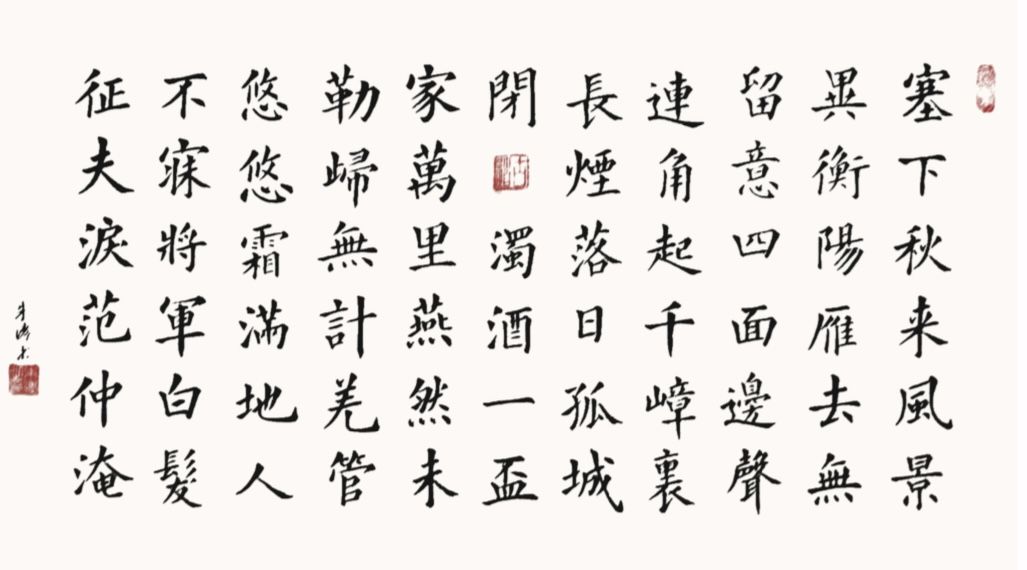 塞下秋来風景
異衡陽雁去無
留意四面邊聲
連角起千嶂裏
長煙落日孤城
閉濁酒一盃
家萬里燕然未
勒歸無計羌管
悠悠霜滿地人
不寐將軍白髮
征夫淚范仲淹